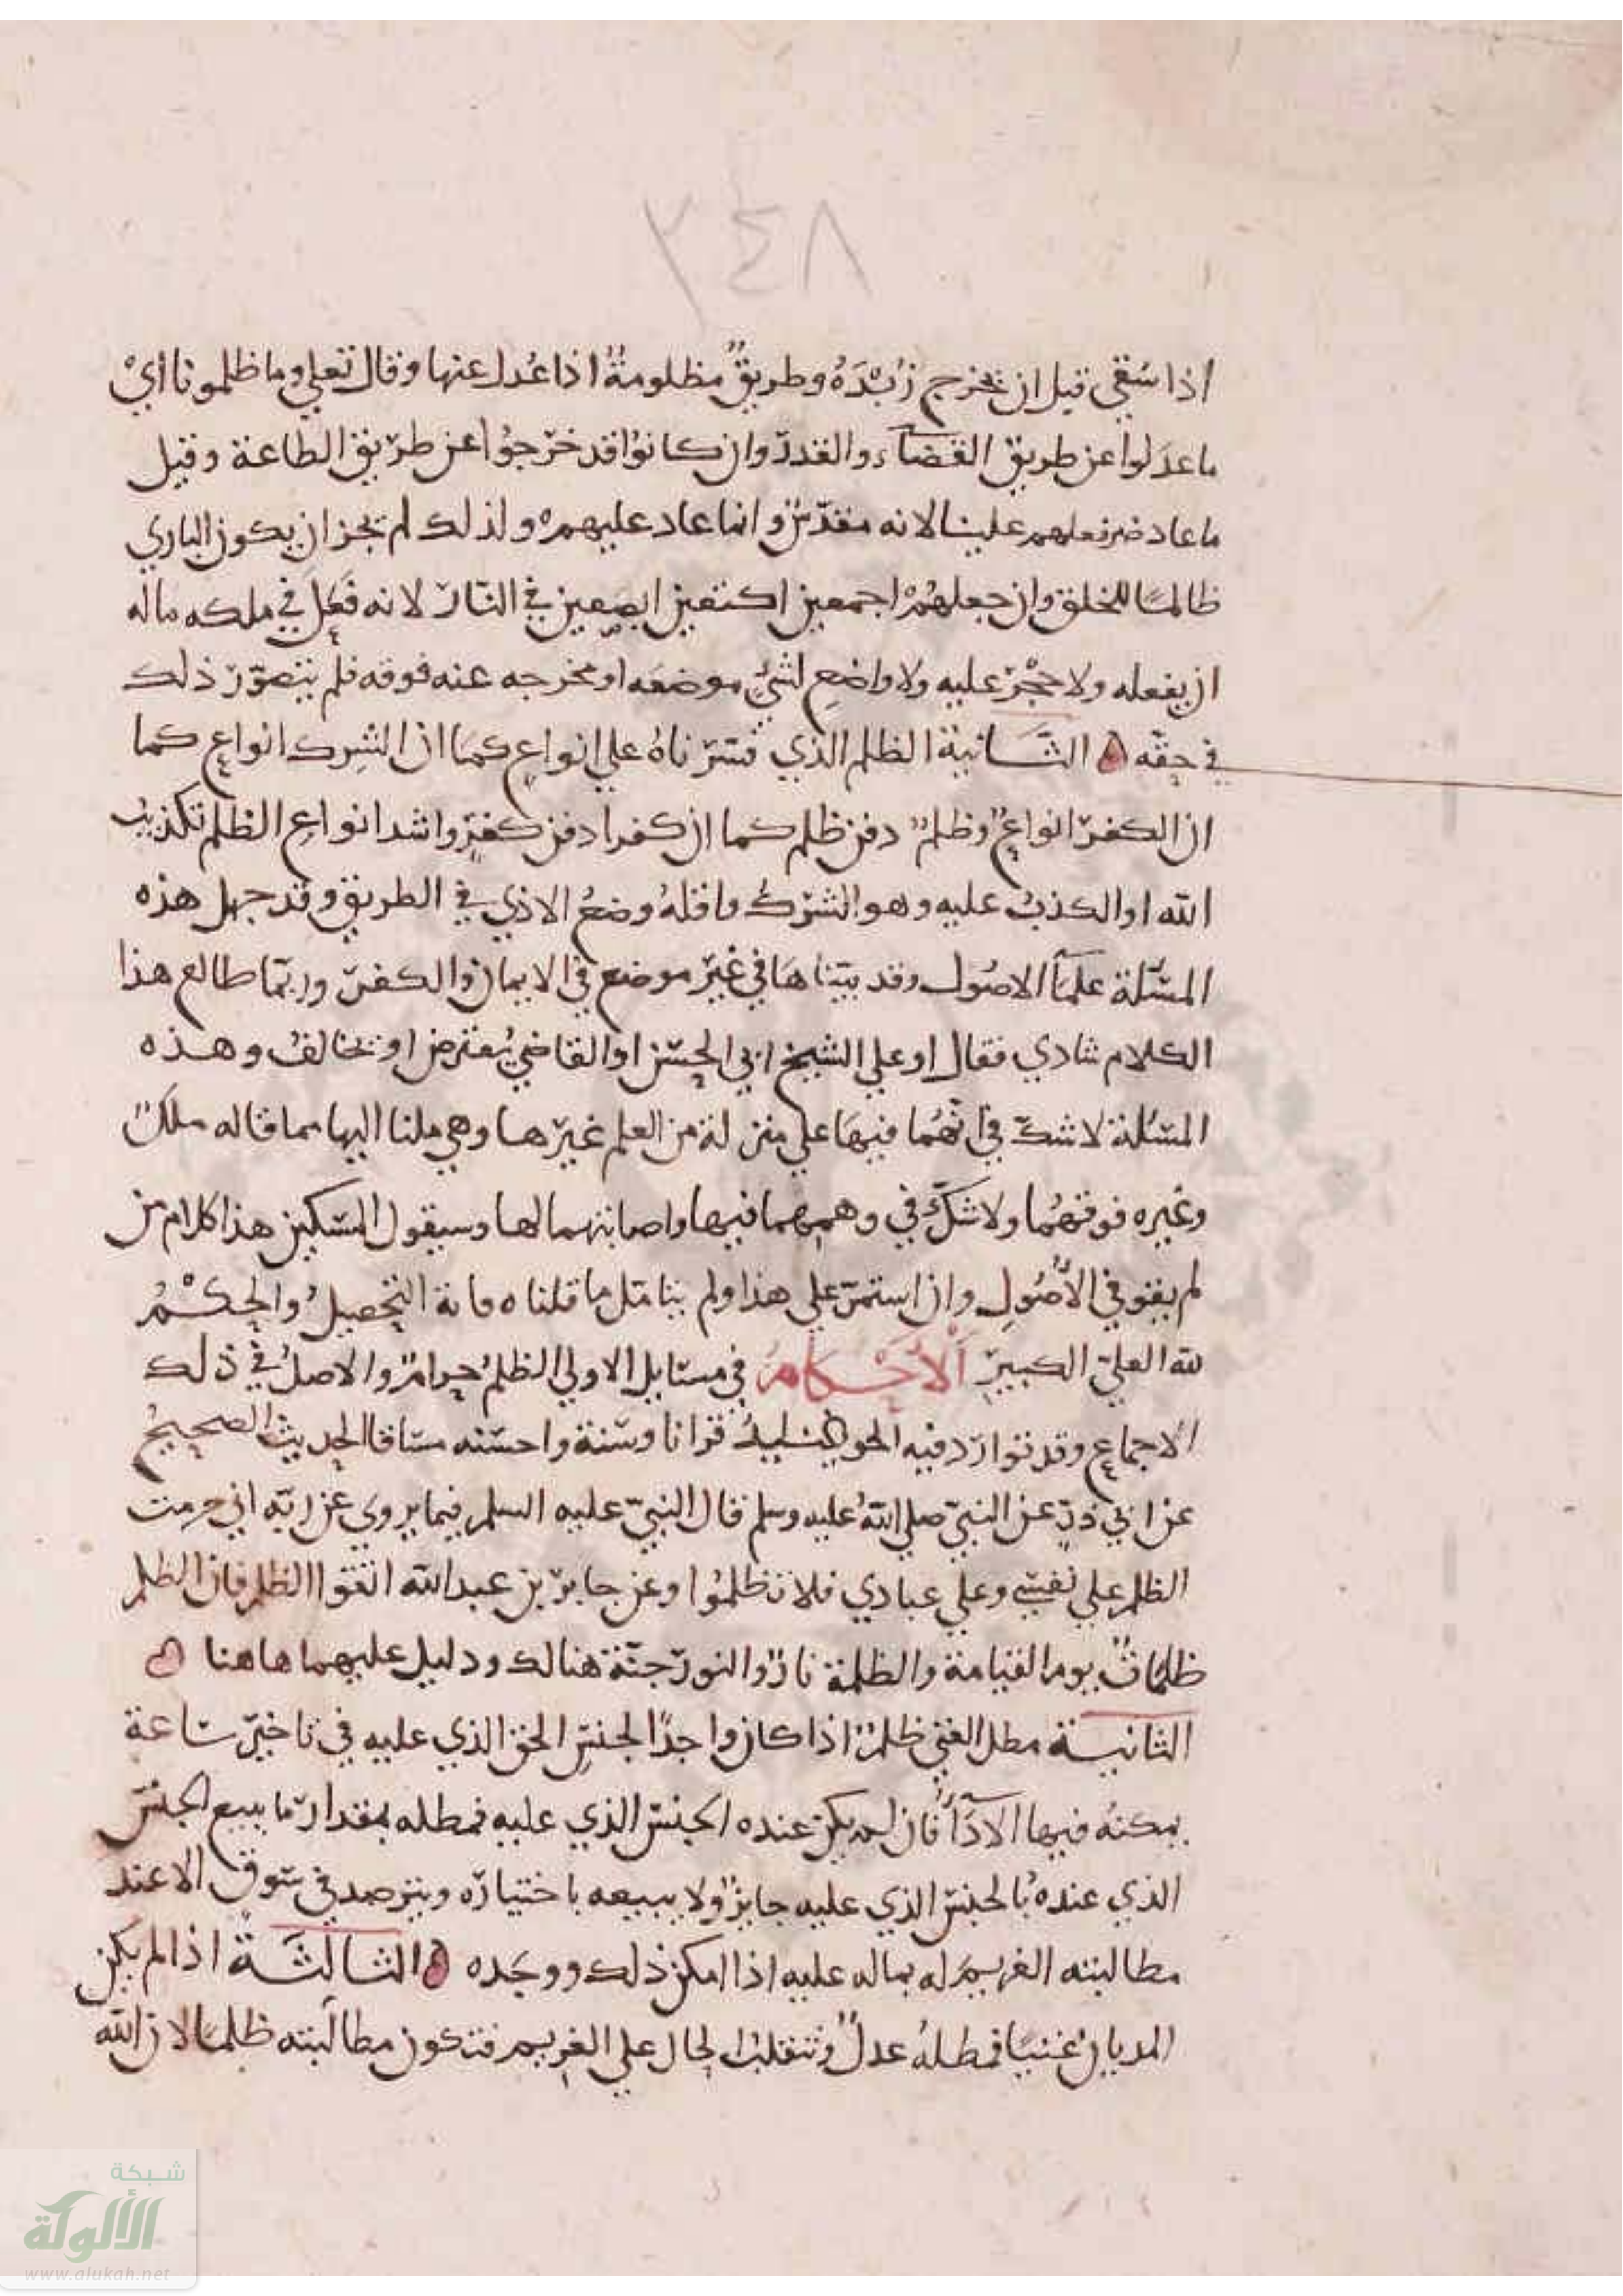 ٢٤٨
اذا سُقي قبل ان يخرج زُبْدَهُ وطريقٌ مظلومةٌ اذا عُدل عنها وقال تعلي وما ظلمونا أيْ
ما عدَلوا عن طريق القضآء والقدر وان كانوا قد خرجوا عن طريق الطاعة وقيل
ما عاد ضر فعلهم علينا لانه مقدّس وانما عاد عليهم ولذلك لم يجز ان يكون الباري
ظالمًا للخلق وان جعلهُمْ اجمعين اكتعين ابصعين في النار لانه فَعَل في ملكه ما له
ان يفعله ولا حَجْرَ عليه ولا واضع لشيءٍ موضعَه او مخرجه عنه فوقه فلم يتصور ذلك
في حقه الثَّانية الظلم الذي فسرناهُ علي انواع كما ان الشِرك انواع كما
ان الكفر انواعٌ وظلمٌ دون ظلم كما ان كفرا دون كفرٍ واشد انواع الظلم تكذيبُ
الله او الكذبُ عليه وهو الشركُ واقلهُ وضعُ الاذي في الطريق وقد جهل هذه
المسٔلة علمآ الاصول وقد بيّناهَا في غير موضع في الايمان والكفر وربّما طالع هذا
الكلام شادي فقال اوعلي الشيخ ابي الحسن او القاضي يُعترض او يخالفُ وهذه
المسئلة لا شكّ في انّهُما فيهَا علي منزلة من العلم غيرها وهي ملنا اليها مما قاله ملكٌ
وغيره فوقهُما ولا شكّ في وهمهما فيها واصابتهما لها وسيقول المسكين هذا كلام من
لم يقو في الأصُولِ وان استمر علي هذا ولم يتامل ما قلناه فاته التحصيلُ والحكْمُ
لله العليّ الكبيرِ اَلْأَحْكَامُ في مسايل الاولي الظلمُ حرامٌ والاصلُ في ذلك
الاجماع وقد توارد فيه الحو قرانا وسنة واحسنه مساقا الحديث الصحيحُ
عن ابي ذرٍّ عن النبيّ صلي اللهُ عليه وسلم قال النبيّ عليه السلم فيما يروي عن ربّه اني حرمت
الظلم علي نفسي وعلي عبادي فلا تظلمُوا وعن جابر بن عبد الله اتّقوا الظلم فان الظلم
ظلماتٌ يوم القيامة والظلمة نارٌ والنور جنّة هنالك ودليل عليهما هاهنا
الثانية مطل الغني ظلمٌ اذا كان واجدًا لجنسِ الحق الذي عليه في تاخير ساعة
يمكنُه فيها الآدَآءُ فان لم يكن عنده الجنس الذي عليه فمطله بمقدار ما يبيع الجنسَ
الذي عندهُ بالجنس الذي عليه جايزٌ ولا يبيعه باختياره ويترصد في سوق الا عند
مطالبته الغريم له بماله عليه اذا امكن ذلك ووجَده الثالثَةُ اذا لم يكن
المديانُ غنيًا فمطلهُ عدلٌ وتنقلبُ الحال علي الغريم فتكون مطالَبته ظلمًا لان الله
شبكة
الألوكة
www.alukah.net